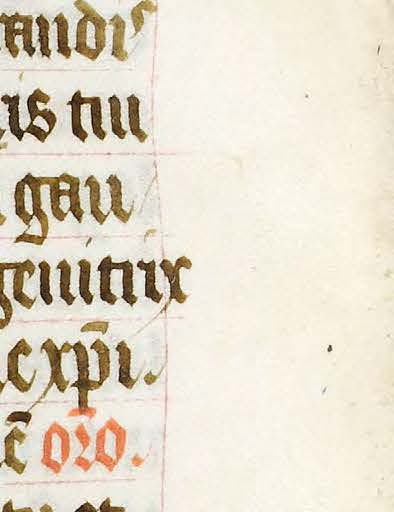 andis
is tui
gau
genitrix
c xp̄i.
c̄ or̄o.